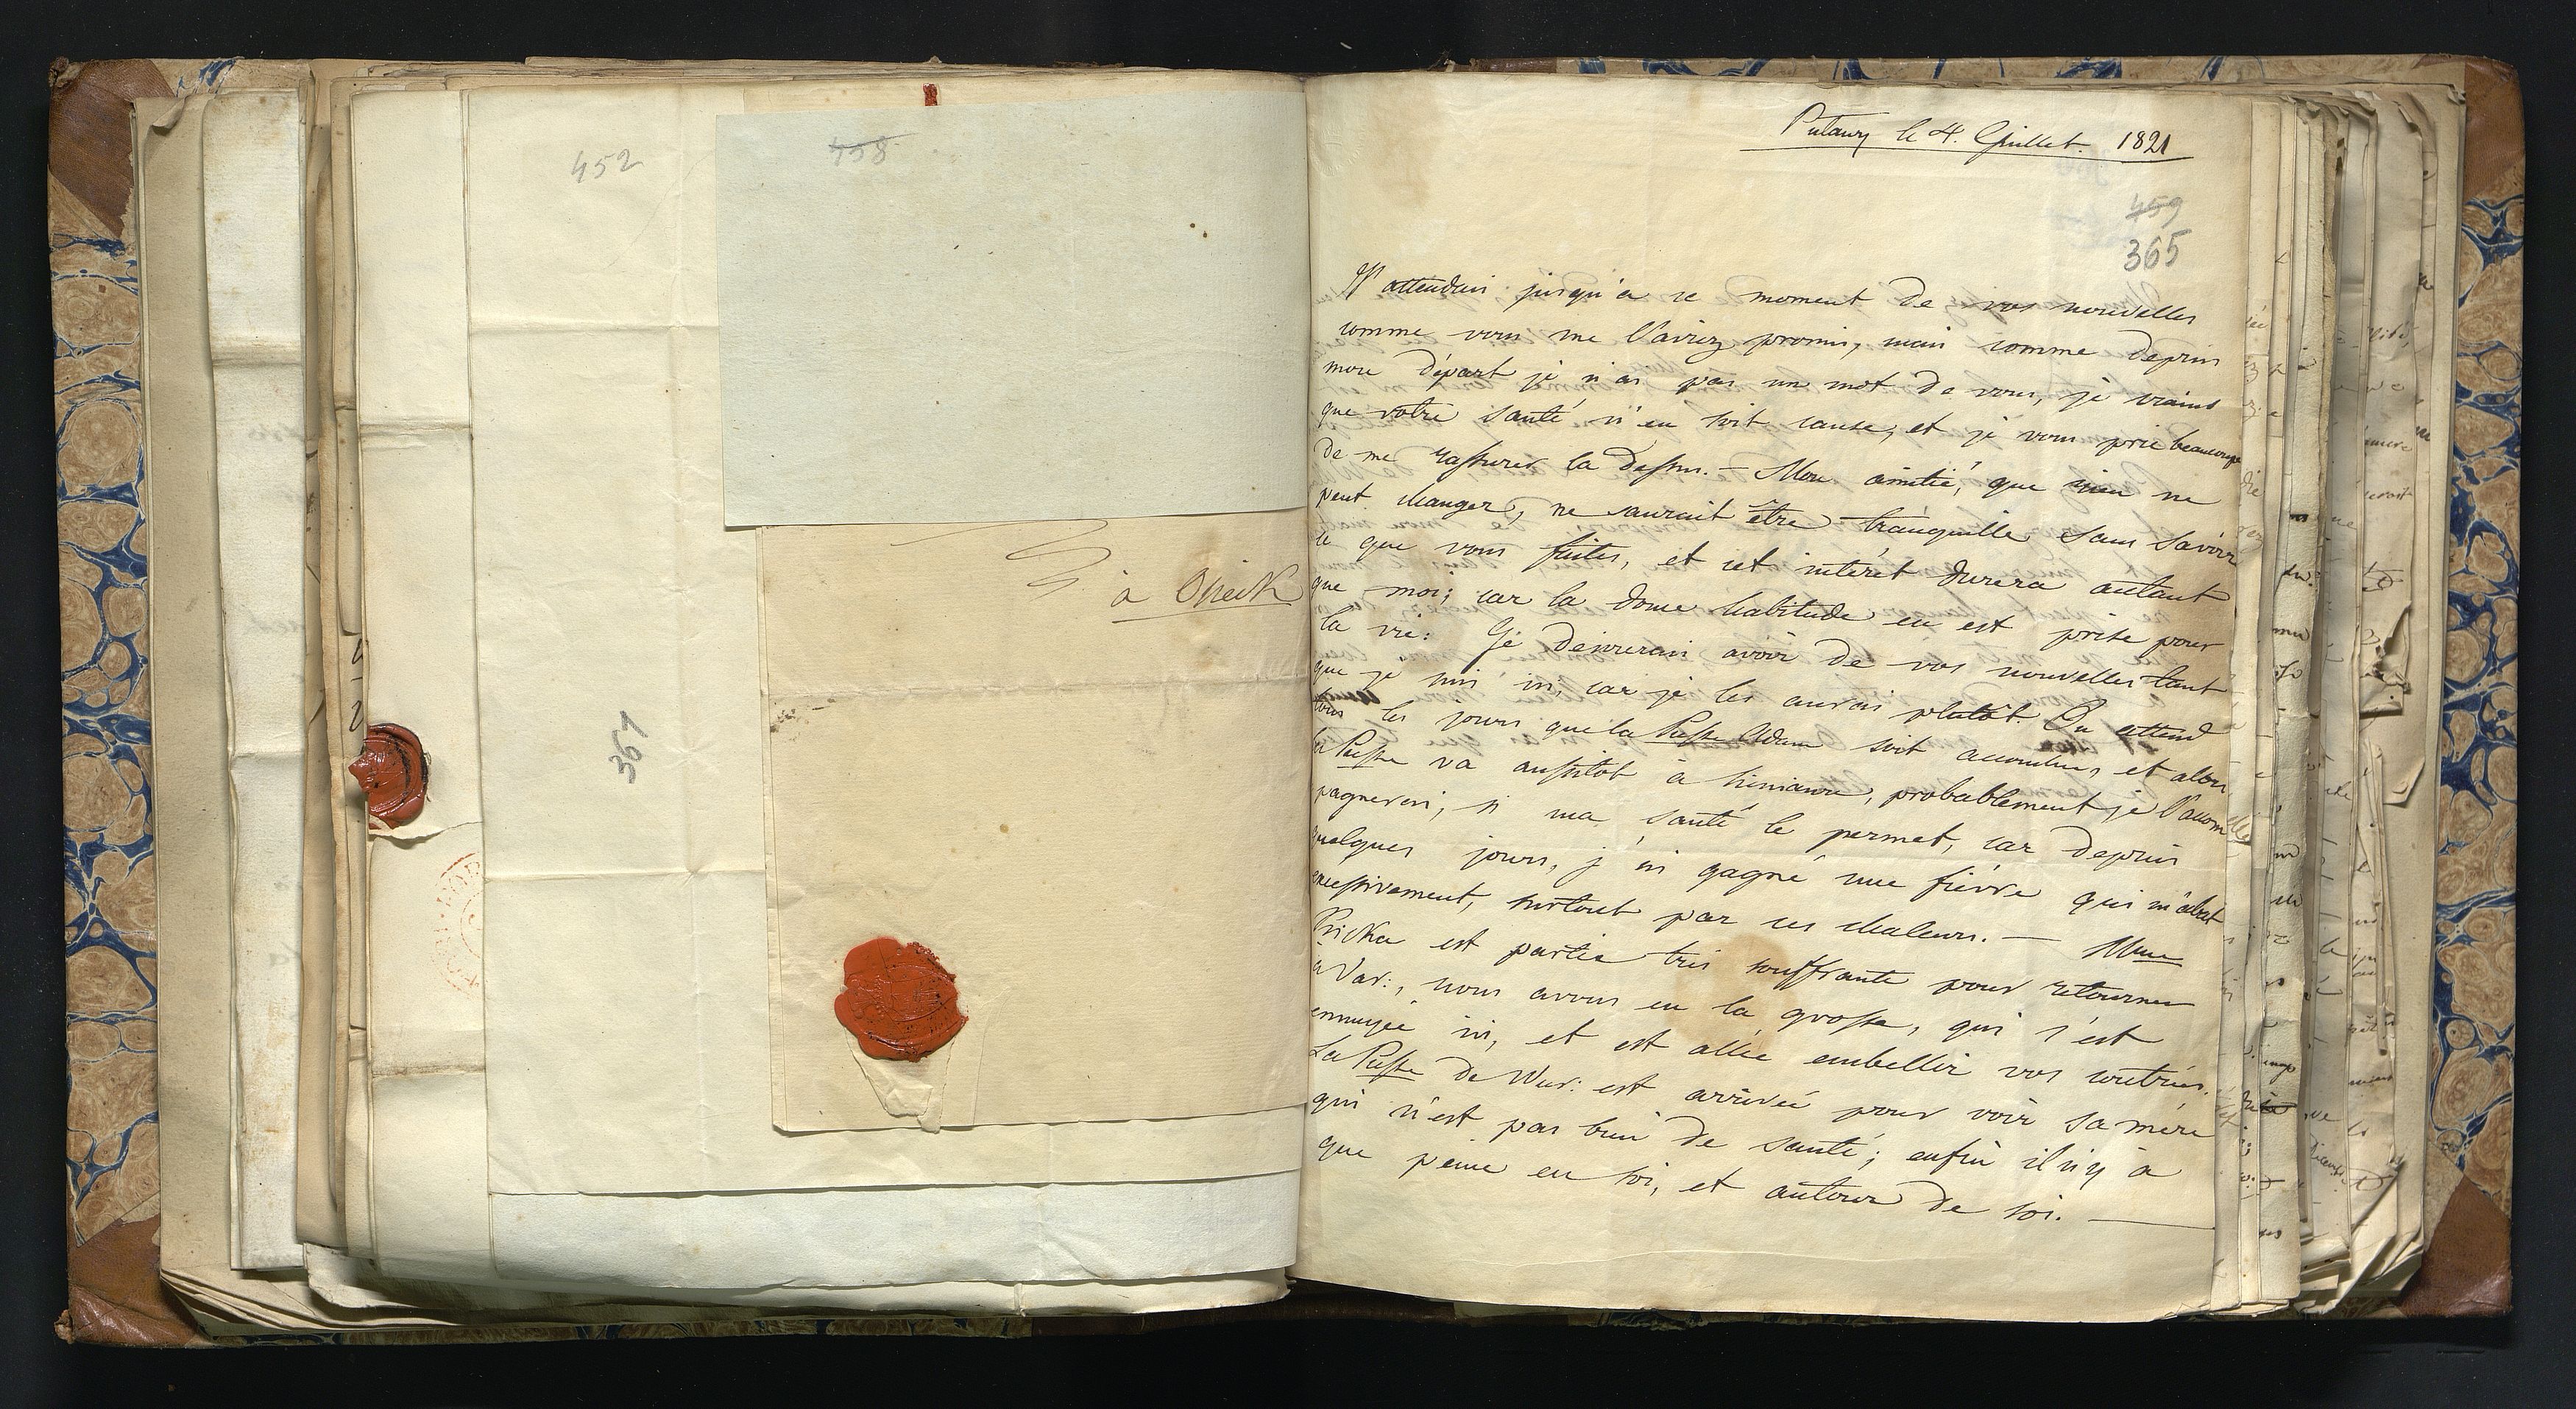 452
458
361
à Osieck
Pulawy le 4. Juillet. 1821
459
365
J'attendois jusqu'à ce moment de vos nouvelles
comme vous me l'aviez promis, mais comme depuis
mon départ je n'ai pas un mot de vous, je crains
que votre santé n'en soit cause, et je vous prie beaucoup
de me rassurer la dessus. — Mon amitié, que rien ne
peut changer, ne saurait être tranquille sans savoir
ce que vous faites, et cet intérêt durera autant
que moi; car la douce habitude en est prise pour
la vie: Je désirerais avoir de vos nouvelles tant
que je suis ici, car je les aurois plutôt. On attend
tous les jours que la Psse Adam soit accouchée, et alors
la Psse va aussitôt à Sieniawa, probablement je l'accom
pagnerai, si ma santé le permet, car depuis
quelques jours, j'ai gagné une fièvre qui m'abat
excessivement, surtout par ces chaleurs. — Mme
est partie très souffrante pour retourner
à Var:, nous avons eu la grosse, qui s'est
ennuyée ici, et est allée embellir vos contrées.
La Psse de Wur: est arrivée pour voir sa mère
qui n'est pas bien de santé; enfin il n'y à
que peine en soi, et autour de soi. —